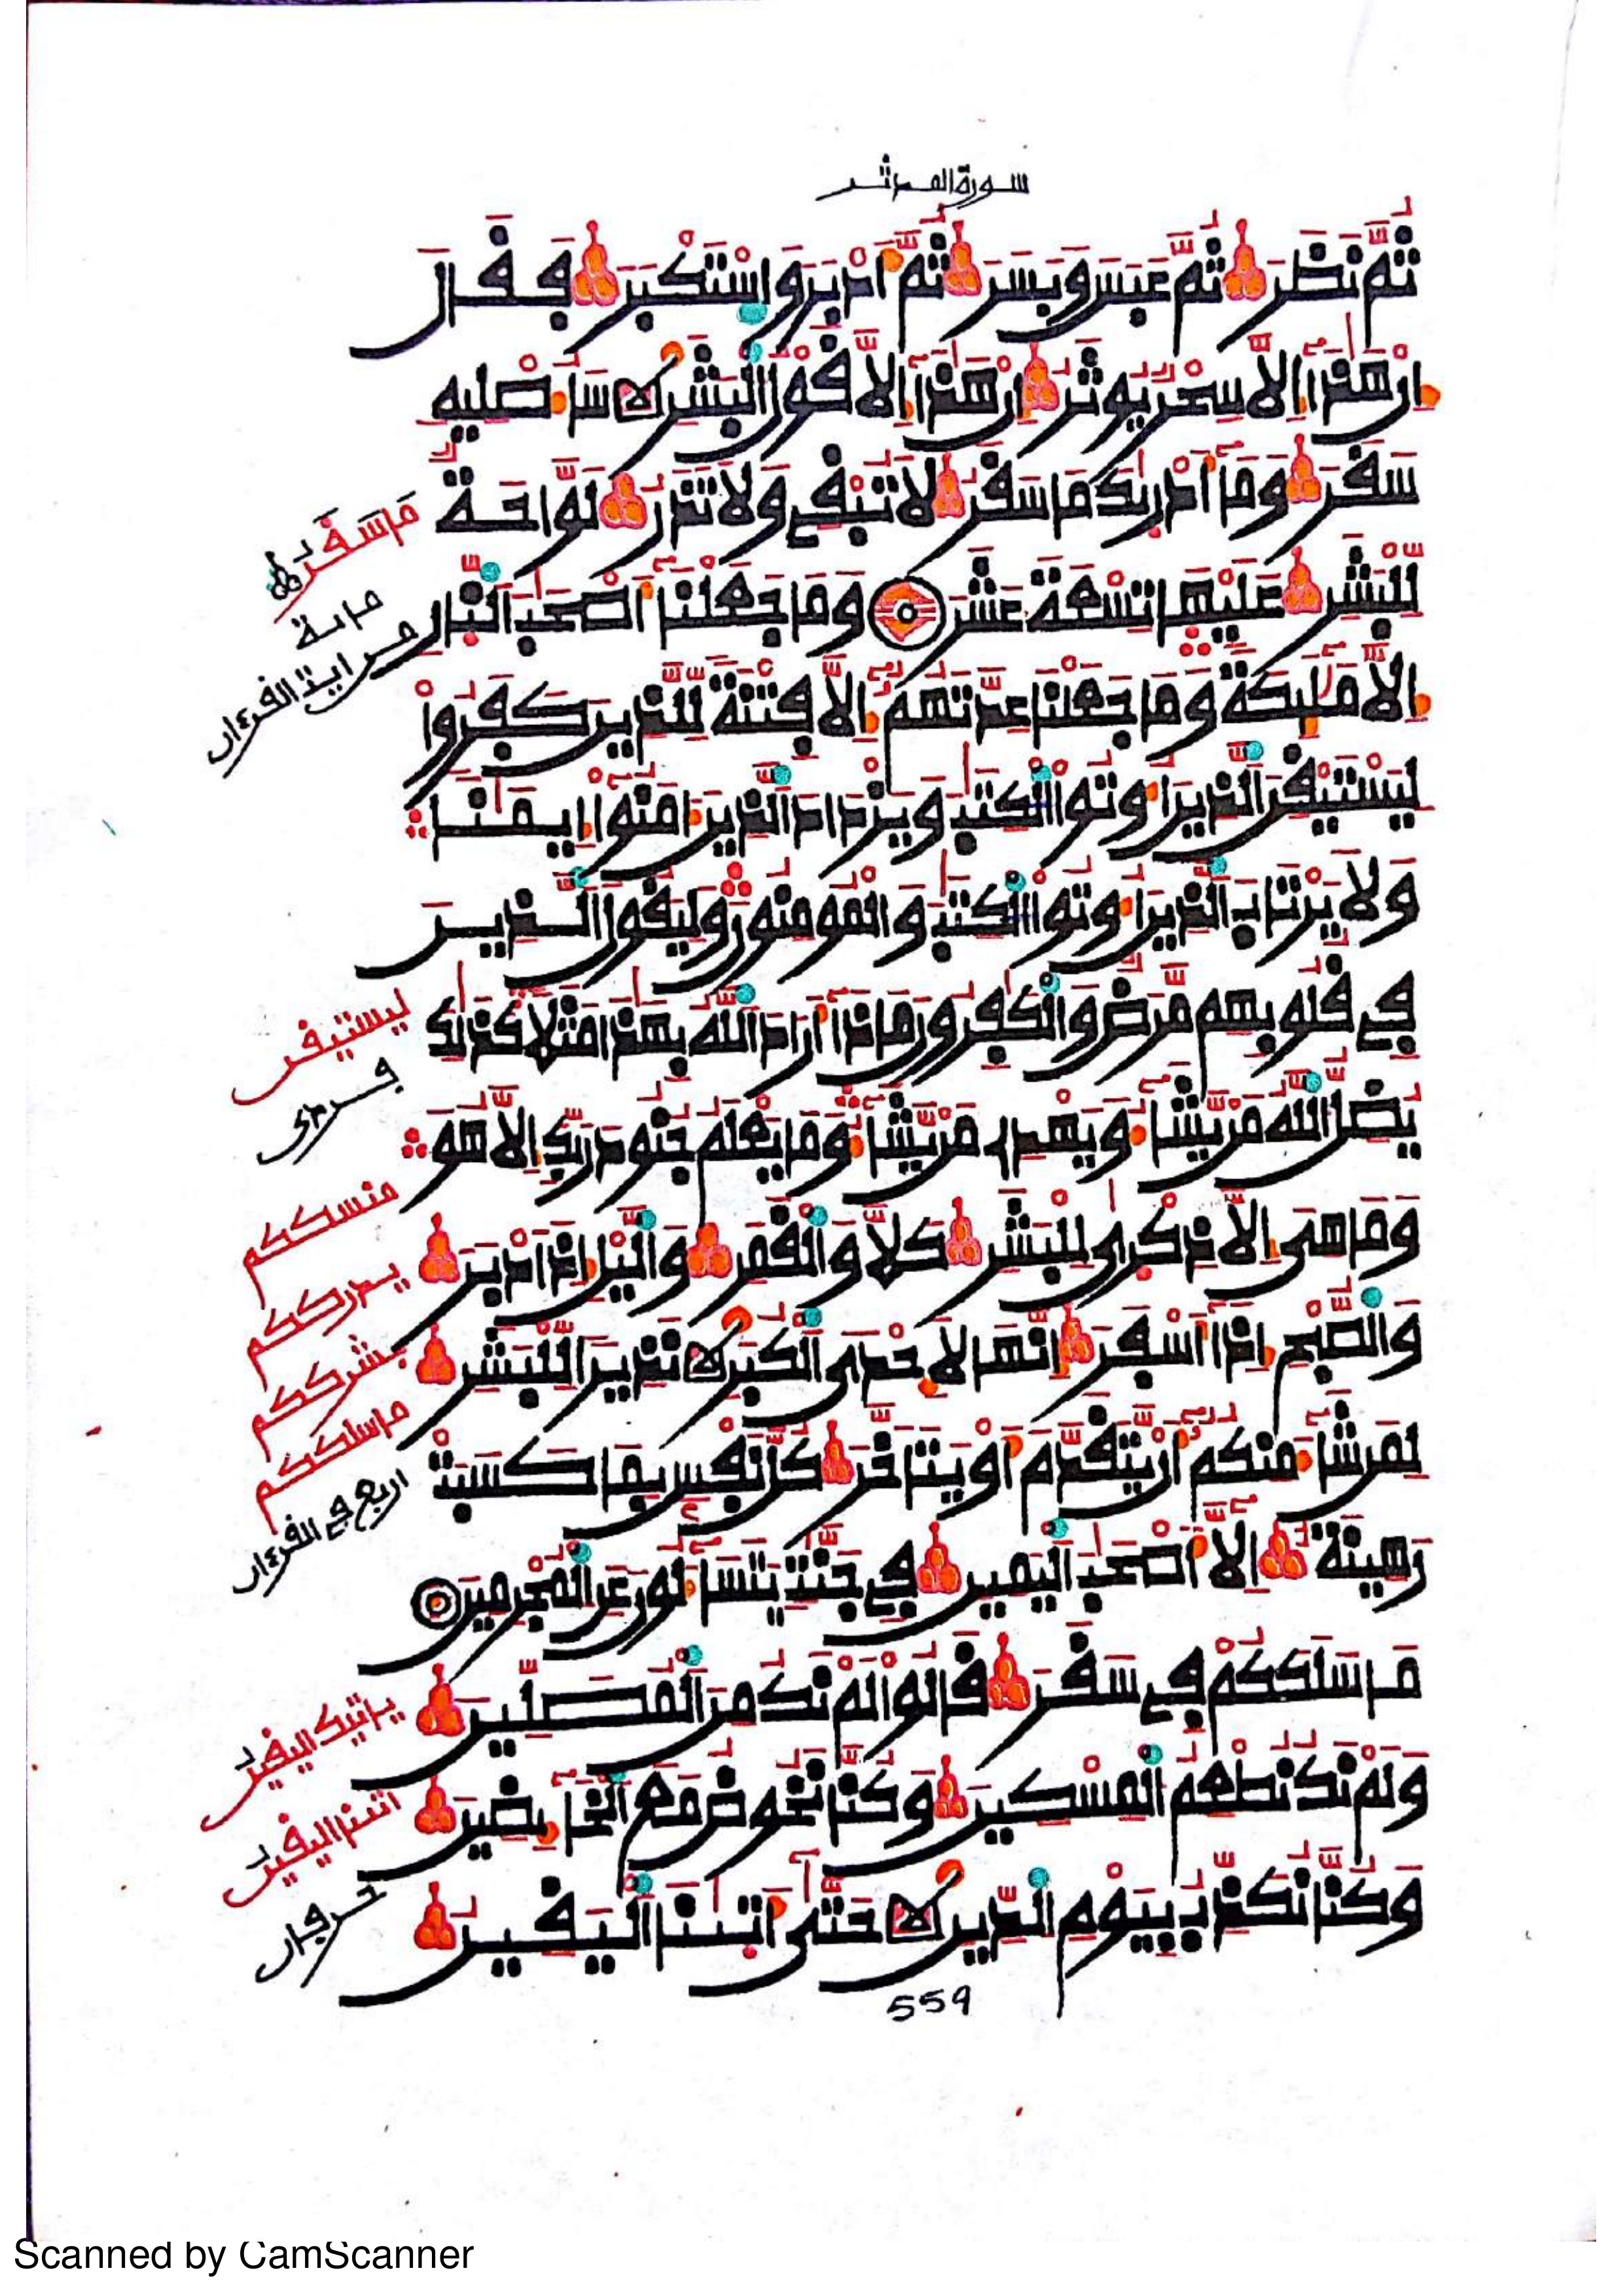 سورة المدثر
ثُمَّ نَظَرَ ثُمَّ عَبَسَ وَبَسَرَ ثُمَّ أَدْبَرَ وَاسْتَكْبَرَ فَقَالَ
إِنْ هَٰذَا إِلَّا سِحْرٌ يُوثَرُ إِنْ هَٰذَا إِلَّا قَوْلُ الْبَشَرِ سَأُصْلِيهِ
سَقَرَ وَمَا أَدْرَىٰكَ مَا سَقَرُ لَا تُبْقِي وَلَا تَذَرُ لَوَّاحَةٌ
لِّلْبَشَرِ عَلَيْهَا تِسْعَةَ عَشَرَ وَمَا جَعَلْنَا أَصْحَٰبَ النَّارِ
إِلَّا مَلَٰئِكَةً وَمَا جَعَلْنَا عِدَّتَهُمُ إِلَّا فِتْنَةً لِّلَّذِينَ كَفَرُوا
لِيَسْتَيْقِنَ الَّذِينَ أُوتُوا الْكِتَٰبَ وَيَزْدَادَ الَّذِينَ ءَامَنُوا إِيمَٰنًا
وَلَا يَرْتَابَ الَّذِينَ أُوتُوا الْكِتَٰبَ وَالْمُومِنُونَ وَلِيَقُولَ الَّذِينَ
فِي قُلُوبِهِم مَّرَضٌ وَالْكَٰفِرُونَ مَاذَا أَرَادَ اللَّهُ بِهَٰذَا مَثَلًا كَذَٰلِكَ
يُضِلُّ اللَّهُ مَنْ يَّشَاءُ وَيَهْدِي مَنْ يَّشَاءُ وَمَا يَعْلَمُ جُنُودَ رَبِّكَ إِلَّا هُوَ
وَمَا هِيَ إِلَّا ذِكْرَىٰ لِلْبَشَرِ كَلَّا وَالْقَمَرِ وَالَّيْلِ إِذْ أَدْبَرَ
وَالصُّبْحِ إِذَا أَسْفَرَ إِنَّهَا لَإِحْدَى الْكُبَرِ نَذِيرًا لِّلْبَشَرِ
لِمَن شَاءَ مِنكُمُ أَنْ يَّتَقَدَّمَ أَوْ يَتَأَخَّرَ كُلُّ نَفْسٍ بِمَا كَسَبَتْ
رَهِينَةٌ إِلَّا أَصْحَٰبَ الْيَمِينِ فِي جَنَّٰتٍ يَتَسَاءَلُونَ عَنِ الْمُجْرِمِينَ
مَا سَلَكَكُمْ فِي سَقَرَ قَالُوا لَمْ نَكُ مِنَ الْمُصَلِّينَ
وَلَمْ نَكُ نُطْعِمُ الْمِسْكِينَ وَكُنَّا نَخُوضُ مَعَ الْخَائِضِينَ
وَكُنَّا نُكَذِّبُ بِيَوْمِ الدِّينِ حَتَّىٰ أَتَىٰنَا الْيَقِينُ
مَا سَقَرُ
ماىة
من اية القرءان
ليستيقن
فردى
منسككم
يدرككم
بشرككم
ما سلككم
اربع في القرءان
ياتيك اليقين
اتىنا اليقين
حرفان
559
Scanned by CamScanner